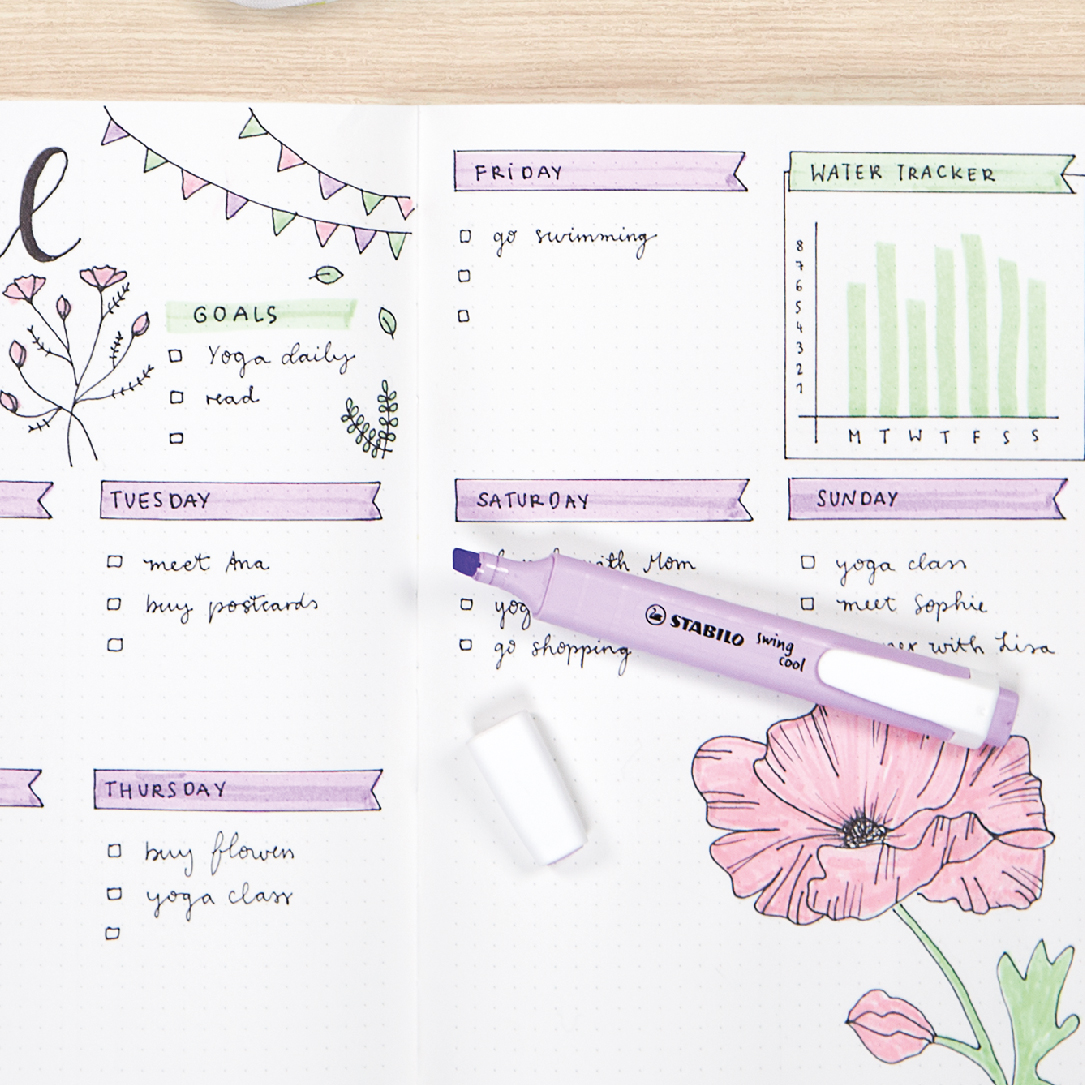 l
GOALS
Yoga daily
read
TUESDAY
meet Ana
buy postcards
THURSDAY
buy flowers
yoga class
FRIDAY
go swimming
WATER TRACKER
8
7
6
5
4
3
2
1
M T W T F S S
SATURDAY
with Mom
go shopping
SUNDAY
yoga class
meet Sophie
with Lisa
STABILO swing
cool